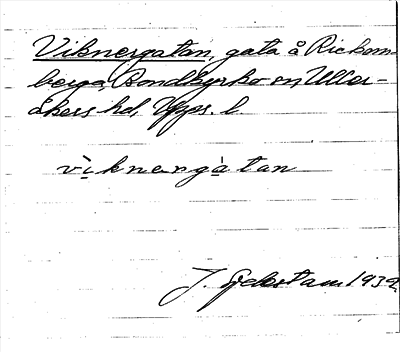 Viknergatan, gata å Rickom-
berga, Bondkyrko sn, Uller-
åkers hd, Upps. l.
vìknergàtan
J. Sjelestam 1939